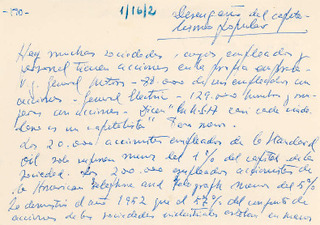 -170-
1/16/2
Desengaño del capita-
lismo popular
Hay muchas sociedades - cuyos empleados y
personal tienen acciones en la propia empresa -
"General Motors - 78.000 de sus empleados con
acciones - General Electric - 129.000 hombres y mu-
jeres con acciones - Dicen "en USA con cada ciuda-
dano es un capitalista"
Los 20.000 accionistas empleados de la Standard
Oil solo reunen menos del 1% del capital de la
sociedad. Los 200.000 empleados accionistas de
la American Telephone and Telegraph menos del 5%
Se demostró el año 1952 que el 57% del conjunto de
acciones de las sociedades industriales estaban en manos